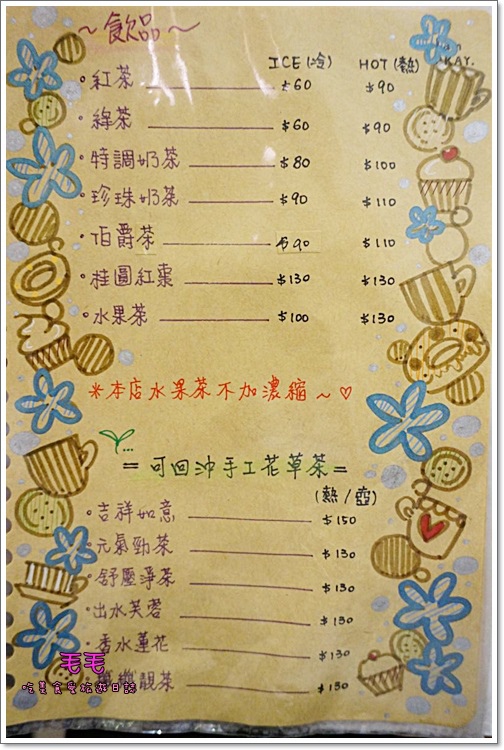 ～飲品～
ICE(冷) HOT(熱)
・紅茶 $60 $90
・綠茶 $60 $90
・特調奶茶 $80 $100
・珍珠奶茶 $90 $110
・伯爵茶 $90 $110
・桂圓紅棗 $130 $130
・水果茶 $100 $130
＊本店水果茶不加濃縮～♡
＝可回沖手工花草茶＝
(熱/壺)
・吉祥如意 $150
・元氣勁茶 $130
・舒壓淨茶 $130
・出水芙蓉 $130
・香水蓮花 $130
靚茶 $130
毛毛